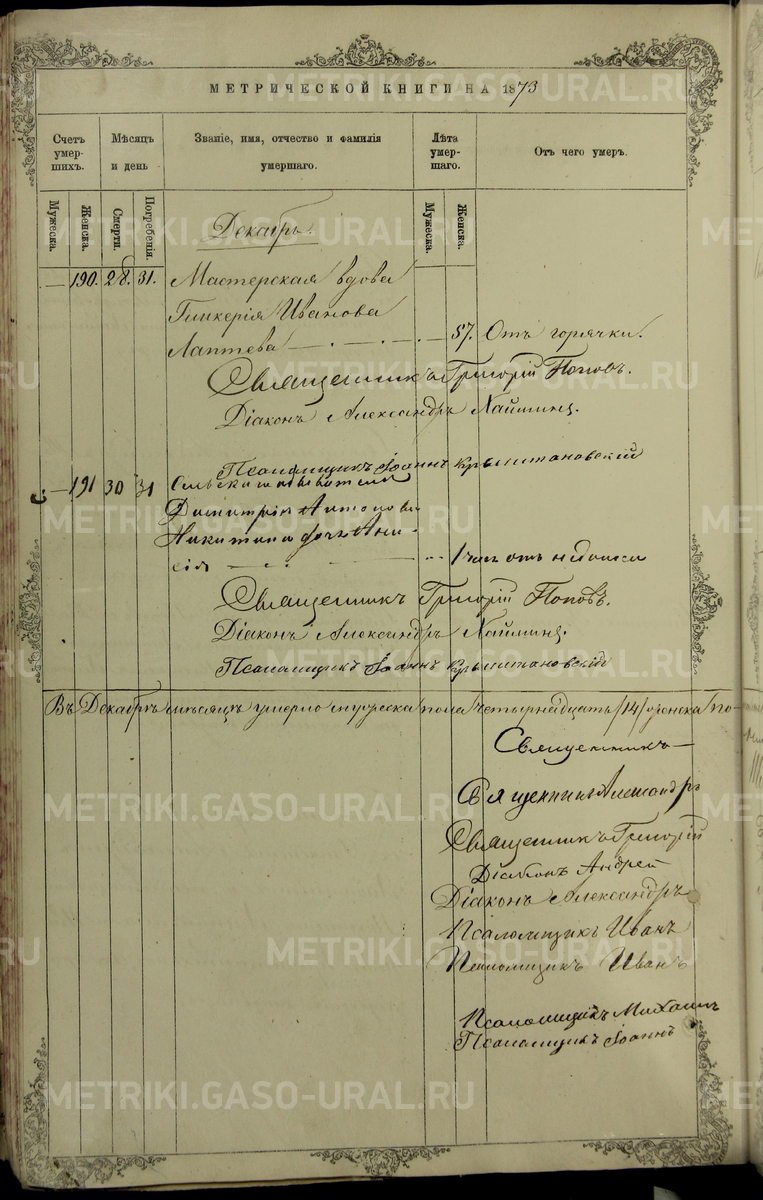 МЕТРИЧЕСКОЙ КНИГИ НА 1873
Счетъ умер- шихъ. Мѣсяцъ и день Званіе, имя, отчество и фамилія умершаго. Лѣта умер- шаго. Отъ чего умеръ.
Мужеска. Женска. Смерти. Погребенія. Мужеска. Женска.
Декабрь.
— 190. 28. 31. Мастерская вдова
Гликерія Иванова
Лаптева — 57. Отъ горячки.
Священникъ Григорій Поповъ.
Діаконъ Александръ
Псаломщикъ Іоаннъ Крыштановскій
— 191 30 31 Сельскаго обывателя
Димитрія Антонова
Никитина дочь Ани-
сія — 1 час. отъ
Священникъ Григорій Поповъ.
Діаконъ Александръ
Псаломщикъ Іоаннъ Крыштановскій
Въ Декабрѣ мѣсяцѣ умерло мужеска пола четырнадцать /14/ женска по-
Священникъ —
Священникъ Александръ
Священникъ Григорій
Діаконъ Андрей
Діаконъ Александръ
Псаломщикъ Иванъ
Псаломщикъ Иванъ
Псаломщикъ Михаилъ
Псаломщикъ Іоаннъ
METRIKI.GASO-URAL.RU